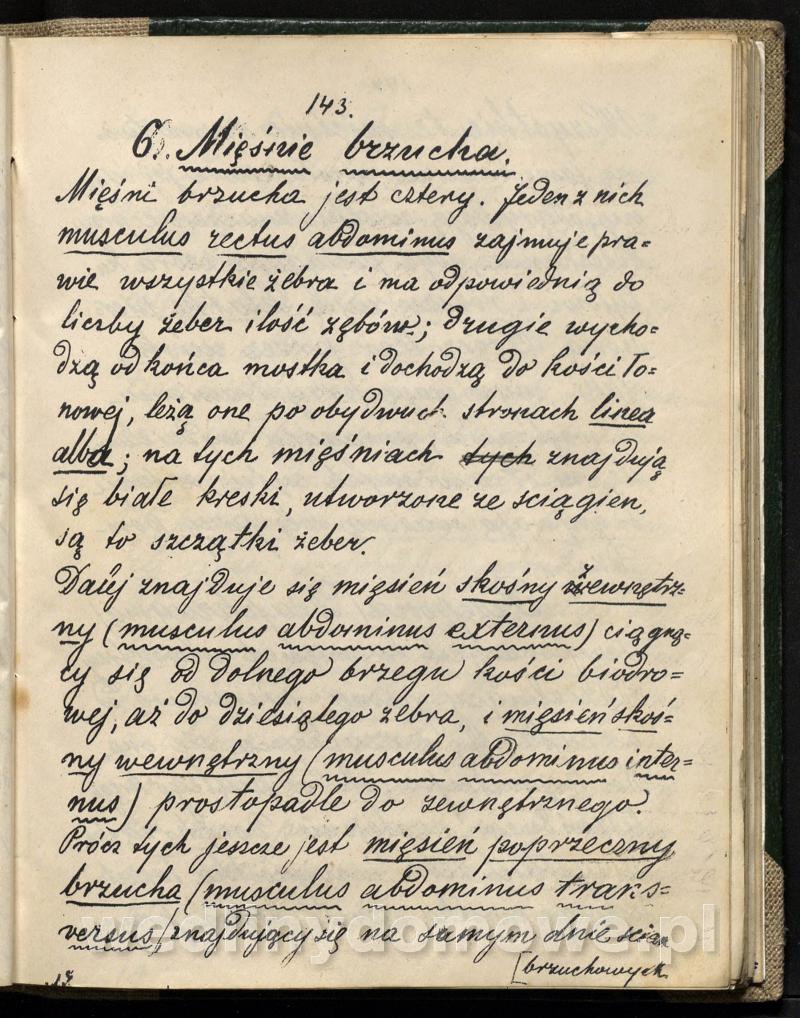 143.
6). Mięśnie brzucha.
Mięśni brzucha jest cztery. Jeden z nich
musculus rectus abdominus zajmuje pra=
wie wszystkie żebra i ma odpowiednią do
liczby żeber ilość zębów; drugie wycho=
dzą od końca mostka i dochodzą do kości ło=
nowej, leżą one po obydwuch stronach linea
alba; na tych mięśniach tych znajdują
się białe kreski, utworzone ze ściągien,
są to szczątki żeber.
Dalej znajduje się mięsień skośny zewnętrz=
ny (musculus abdominus externus) ciągną=
cy się od dolnego brzegu kości biodro=
wej, aż do dziesiątego żebra, i mięsień skoś=
ny wewnętrzny (musculus abdominus inter=
nus) prostopadle do zewnętrznego.
Prócz tych jeszcze jest mięsień poprzeczny
brzucha (musculus abdominus trans=
versus) znajdujący się na samym dnie ścian
[brzuchowych
wedlinydomowe.pl